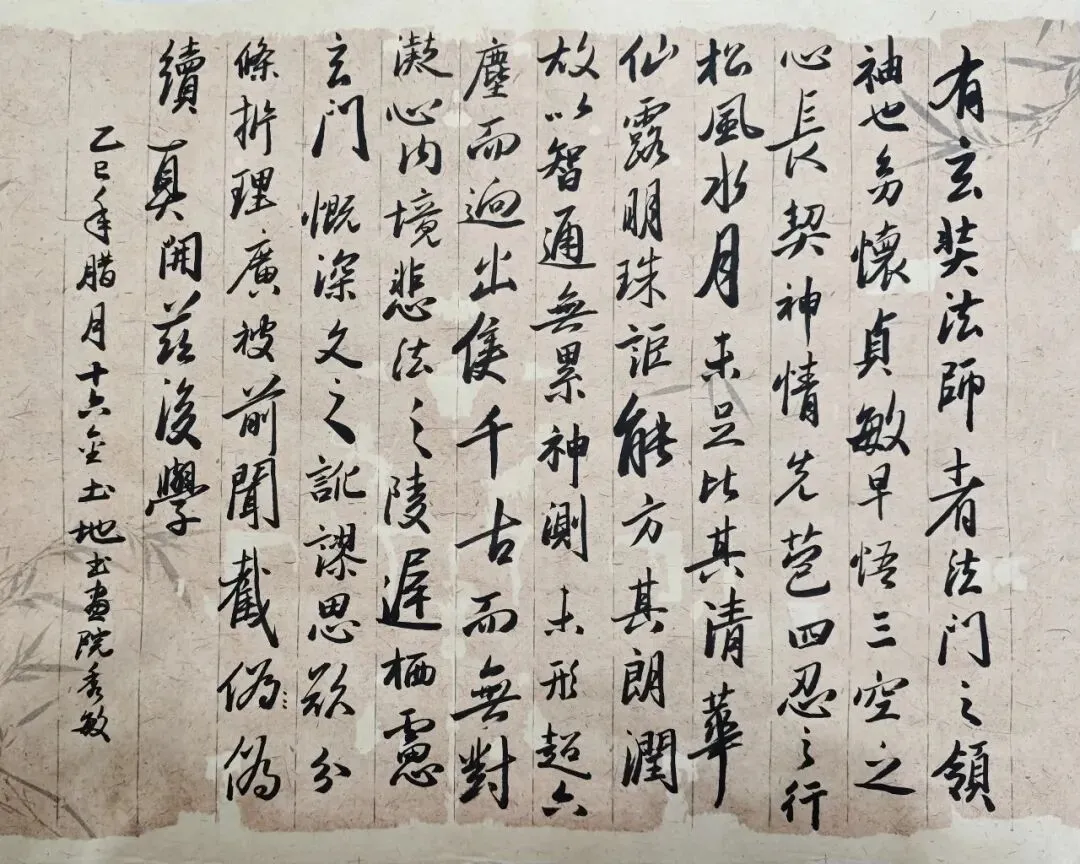 有玄奘法師者法門之領
袖也幼懷貞敏早悟三空之
心長契神情先苞四忍之行
松風水月未足比其清華
仙露明珠詎能方其朗潤
故以智通無累神測未形超六
塵而迥出隻千古而無對
凝心内境悲法之陵遲栖慮
玄門慨深文之訛謬思欲分
條析理廣被前聞截偽偽
續真開茲後學
乙巳年腊月十六金土地书画院秀敏